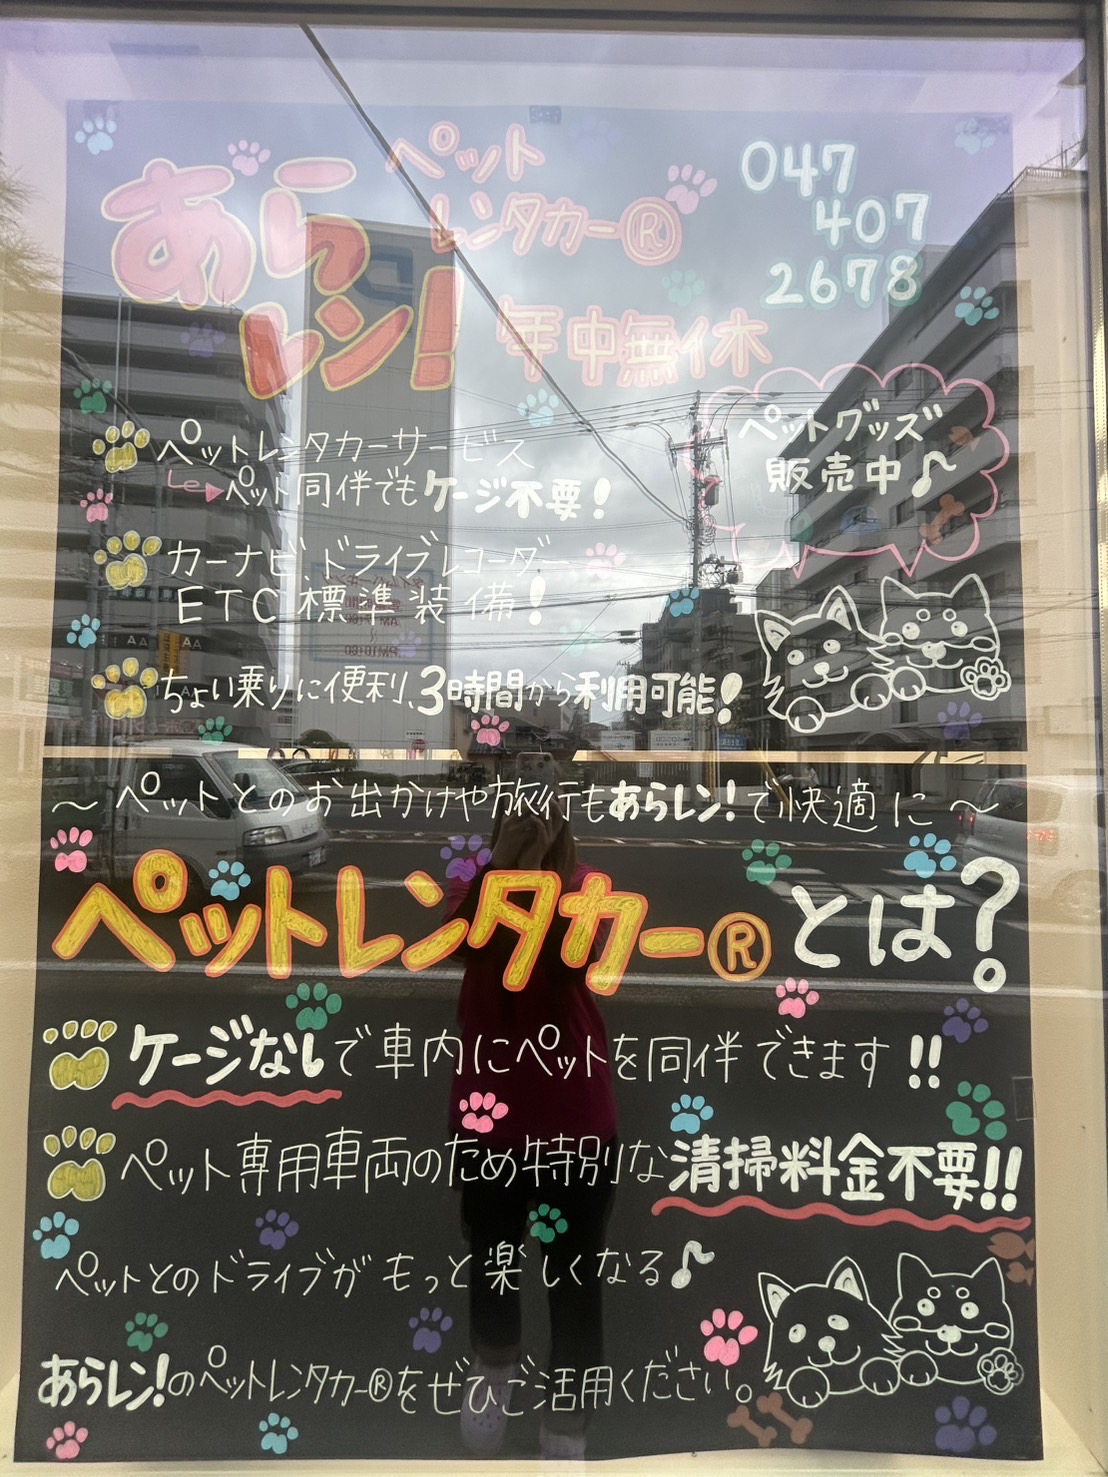 あらレン!
ペット
レンタカー®
047
407
2678
年中無休
ペットレンタカーサービス
ペット同伴でもケージ不要!
ペットグッズ
販売中♪
カーナビ、ドライブレコーダー
ETC標準装備!
ちょい乗りに便利、3時間から利用可能!
～ペットとのお出かけや旅行もあらレン!で快適に～
ペットレンタカー®とは?
ケージなしで車内にペットを同伴できます!!
ペット専用車両のため特別な清掃料金不要!!
ペットとのドライブがもっと楽しくなる♪
あらレン!のペットレンタカー®をぜひご活用ください。